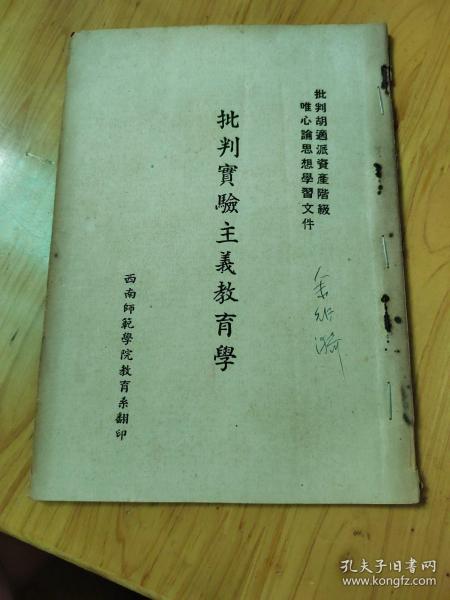 批判胡適派資產階級
唯心論思想學習文件
批判實驗主義教育學
西南師範學院教育系翻印
孔夫子旧书网
www.kongfz.com